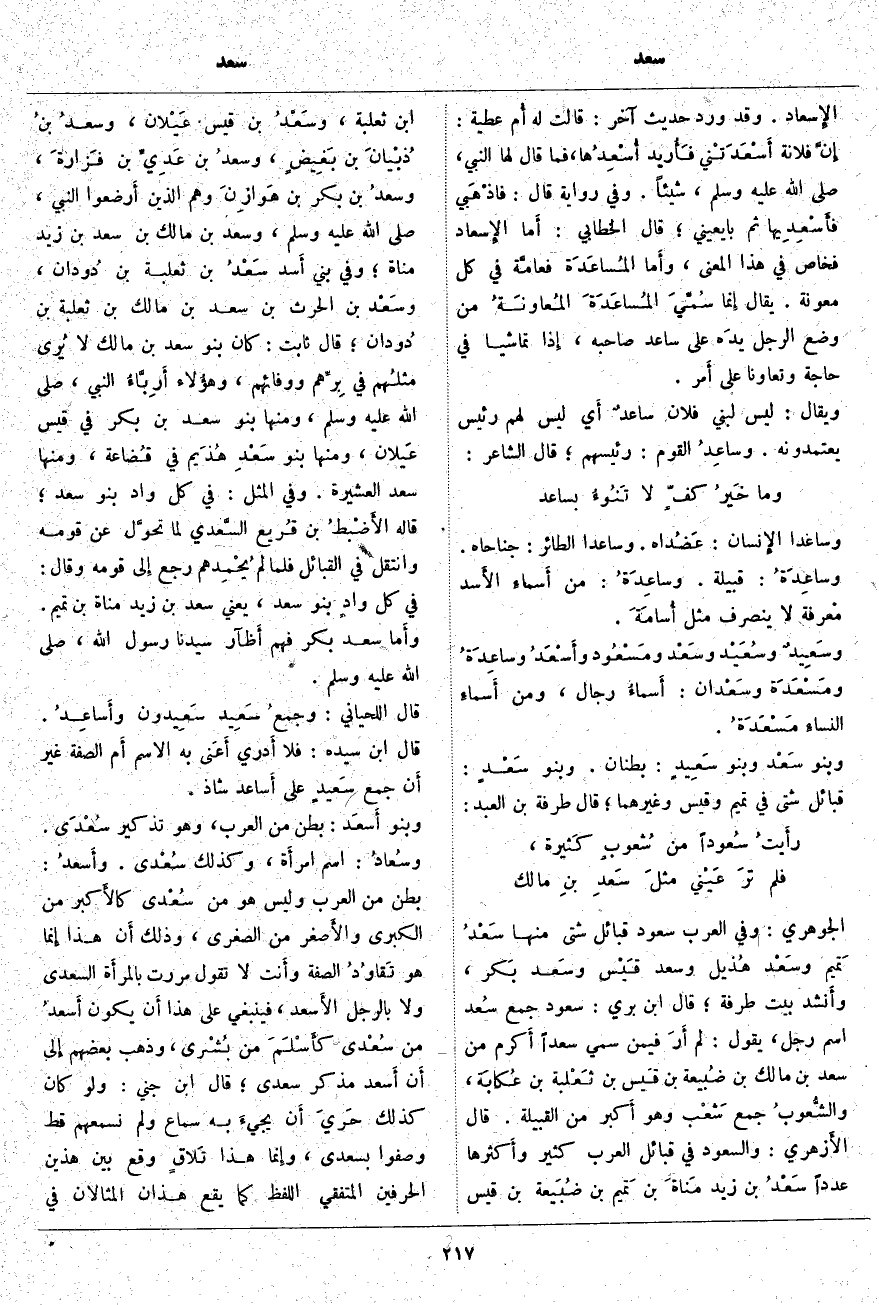 سعد
سعد
الإسعاد . وقد ورد حديث آخر : قالت له أم عطية :
إنَّ فلانة أَسْعَدَتْني فأُريد أُسْعِدُها، فما قال لها النبي،
صلى الله عليه وسلم ، شيئاً . وفي رواية قال : فاذْهَبي
فأَسْعِدِيها ثم بايعيني ؛ قال الخطابي : أما الإسعاد
فخاص في هذا المعنى ، وأما المُساعَدَة فعامَّة في كل
معونة . يقال إنما سُمِّيَ المُساعَدَةَ المُعاونَةُ من
وضع الرجل يدَه على ساعد صاحبه ، إذا تماشيا في
حاجة وتعاونا على أمر .
ويقال : ليس لبني فلان ساعدٌ أي ليس لهم رئيس
يعتمدونه . وساعِدُ القوم : رئيسهم ؛ قال الشاعر :
وما خَيرُ كفٍّ لا تَنُوءُ بساعد
وساعدا الإنسان : عَضُداه . وساعدا الطائر : جناحاه .
وساعِدَةُ : قبيلة . وساعِدَةُ : من أسماء الأسد
معرفة لا ينصرف مثل أُسامَةَ .
وسَعِيدٌ وسُعَيْد وسَعْد ومَسْعُود وأَسْعَدُ وساعِدَةُ
ومَسْعَدَة وسَعْدان : أسماءُ رجال ، ومن أسماء
النساء مَسْعَدَةُ .
وبنو سَعْد وبنو سَعِيدٍ : بطنان . وبنو سَعْدٍ :
قبائل شتى في تميم وقيس وغيرهما ؛ قال طرفة بن العبد :
رأَيتُ سُعوداً من شُعوبٍ كَثيرة ،
فلم ترَ عَيْني مثلَ سَعدِ بنِ مالك
الجوهري : وفي العرب سعود قبائل شتى منها سَعْدُ
تَميم وسَعْد هُذيل وسعد قَيْس وسَعد بَكر ،
وأنشد بيت طرفة ؛ قال ابن بري : سعود جمع سعد
اسم رجل، يقول : لم أرَ فيمن سمي سعداً أكرم من
سعد بن مالك بن ضُبيعة بن قَيس بن ثَعْلبة بن عُكابَة ،
والشُّعوبُ جمع شَعْب وهو أكبر من القبيلة . قال
الأزهري : والسعود في قبائل العرب كثير وأكثرها
عدداً سَعْدُ بن زيد مَناةَ بن تَميم بن ضُبَيعة بن قيس
ابن ثعلبة ، وسَعْدُ بن قيس عَيْلان ، وسعدُ بنُ
ذُبْيانَ بن بَغِيضٍ ، وسعدُ بن عَدِيِّ بن فَزارةَ ،
وسعدُ بن بكر بن هَوازِنَ وهم الذين أرضعوا النبي ،
صلى الله عليه وسلم ، وسعد بن مالك بن سعد بن زيد
مناة ؛ وفي بني أسد سَعْدُ بن ثعلبة بن دُودان ،
وسَعْد بن الحرث بن سعد بن مالك بن ثعلبة بن
دُودان ؛ قال ثابت : كان بنو سعد بن مالك لا يُرى
مثلُهم في بِرِّهم ووفائهم ، وهؤلاء أَرِبَّاءُ النبي ، صلى
الله عليه وسلم ، ومنها بنو سعد بن بكر في قيس
عَيلان ، ومنها بنو سَعْدِ هُذَيم في قُضاعة ، ومنها
سعد العشيرة . وفي المثل : في كل واد بنو سعد ؛
قاله الأَضْبطُ بن قُريع السَّعدي لما تحوَّل عن قومه
وانتقل في القبائل فلما لم يُحْمِدهم رجع إلى قومه وقال :
في كل وادٍ بنو سعد ، يعني سعد بن زيد مناة بن تميم .
وأما سعد بكر فهم أظآر سيدنا رسول الله ، صلى
الله عليه وسلم .
قال اللحياني : وجمعُ سَعِيد سَعِيدون وأَساعِدُ .
قال ابن سيده : فلا أدري أَعَنى به الاسم أم الصفة غير
أن جمع سَعِيدٍ على أساعد شاذ .
وبنو أسعَد : بطن من العرب، وهو تذكير سُعْدَى .
وسُعادُ : اسم امرأة ، وكذلك سُعْدى . وأسعدُ :
بطن من العرب وليس هو من سُعْدى كالأكبر من
الكبرى والأصغر من الصغرى ، وذلك أن هذا إنما
هو تَقاوُدُ الصفة وأنت لا تقول مررت بالمرأة السعدى
ولا بالرجل الأسعد ، فينبغي على هذا أن يكون أسعدُ
من سُعْدى كأَسْلَمَ من بُشْرى ، وذهب بعضهم إلى
أن أسعد مذكر سعدى ؛ قال ابن جني : ولو كان
كذلك حَرِيَ أن يجيءَ به سماع ولم نسمعهم قط
وصفوا بسعدى ، وإنما هذا تَلاقٍ وقع بين هذين
الحرفين المتفقي اللفظ كما يقع هذان المثالان في
٢١٧